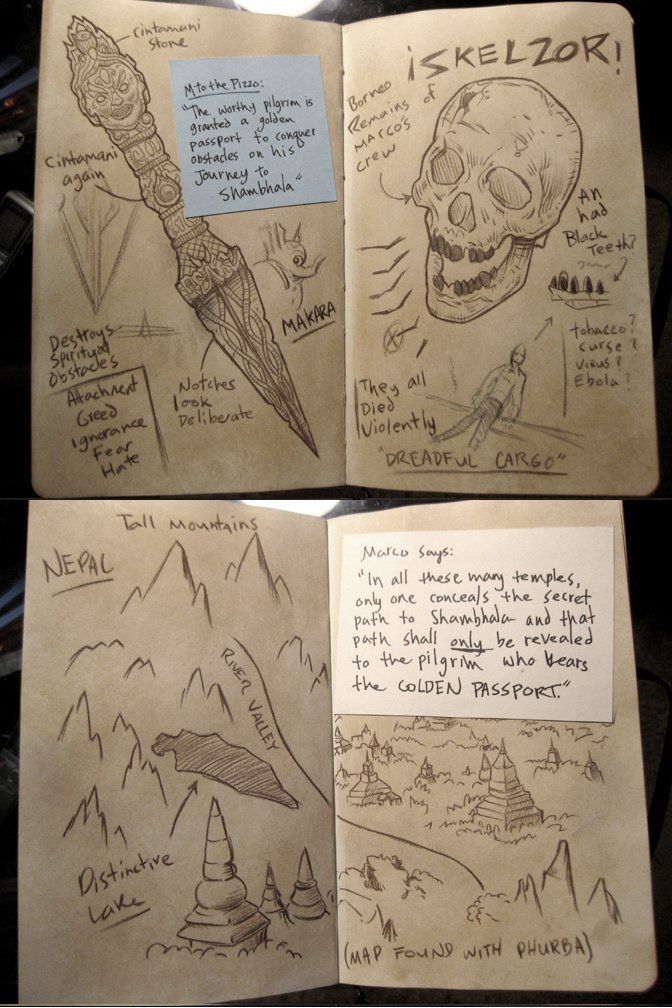 Cintamani
Stone
M to the Pizzo:
"The worthy pilgrim is
granted a golden
passport to conquer
obstacles on his
Journey to
Shambhala"
Cintamani
again
MAKARA
Destroys
Spiritual
Obstacles
Attachment
Greed
ignorance
Fear
Hate
Notches
look
Deliberate
¡SKELZOR!
Borneo
Remains of
MARCO'S
crew
An
had
Black
Teeth?
tobacco?
curse?
virus?
Ebola?
They all
Died
Violently
"DREADFUL CARGO"
Tall Mountains
NEPAL
RIVER VALLEY
Distinctive
Lake
Marco says:
"In all these many temples,
only one conceals the secret
path to Shambhala and that
path shall only be revealed
to the pilgrim who bears
the GOLDEN PASSPORT."
(MAP FOUND WITH PHURBA)